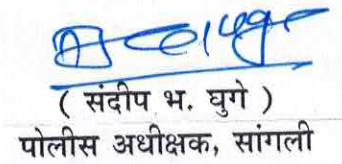 ( संदीप भ. घुगे )
पोलीस अधीक्षक, सांगली